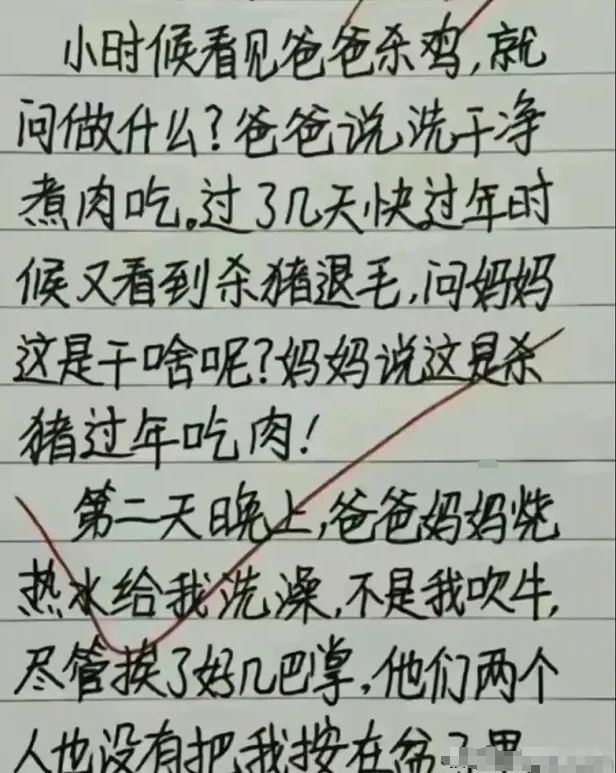 小时候看见爸爸杀鸡,就
问做什么?爸爸说洗干净
煮肉吃。过了几天快过年时
候又看到杀猪退毛,问妈妈
这是干啥呢?妈妈说这是杀
猪过年吃肉!
第二天晚上,爸爸妈妈烧
热水给我洗澡,不是我吹牛,
尽管挨了好几巴掌,他们两个
人也没有把我按在盆子里